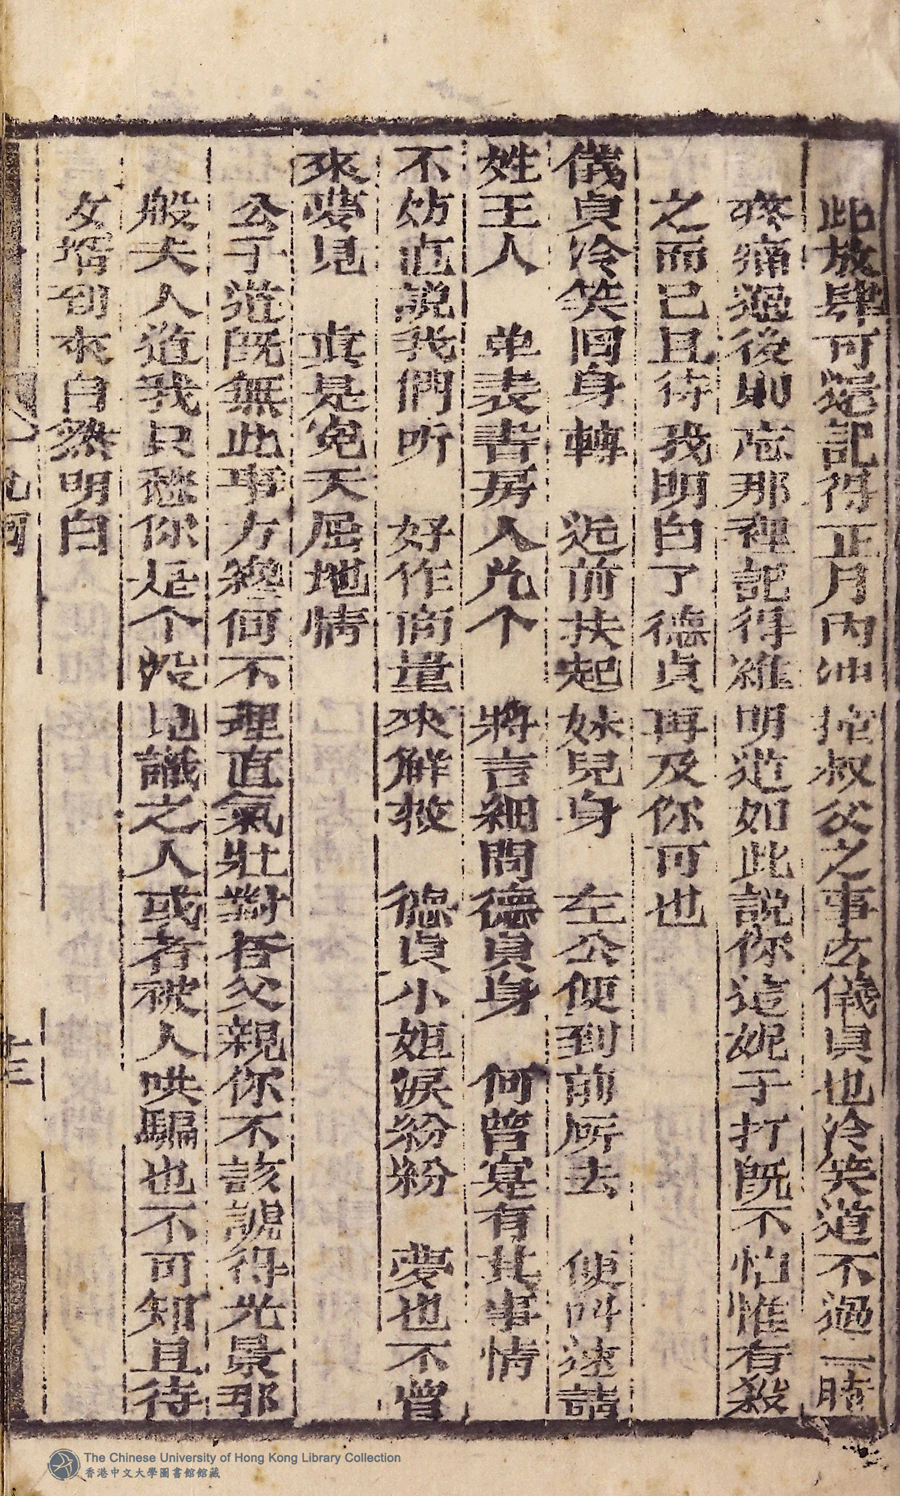 此放肆可還記得正月內沖撞叔父之事么儀貞也冷笑道不過一時
疼痛過後則忘那裡記得維明道如此說你這妮子打既不怕惟有殺
之而已且待我明白了德貞再及你可也
儀貞冷笑回身轉　近前扶起妹兒身　左公便到前所去　便叫速請
姓王人　单表書房人几个　將言細問德貞身　何曾寔有其事情
不妨直說我們听　好作商量來解救　德貞小姐淚紛紛　夢也不曾
來夢見　真是冤天屈地情
公子道既無此事方纔何不理直氣壯對答父親你不該諕得光景那
般夫人道我只愁你是个性地識之人或者被人哄騙也不可知且待
女壻到來自然明白
十三
The Chinese University of Hong Kong Library Collection
香港中文大學圖書館館藏